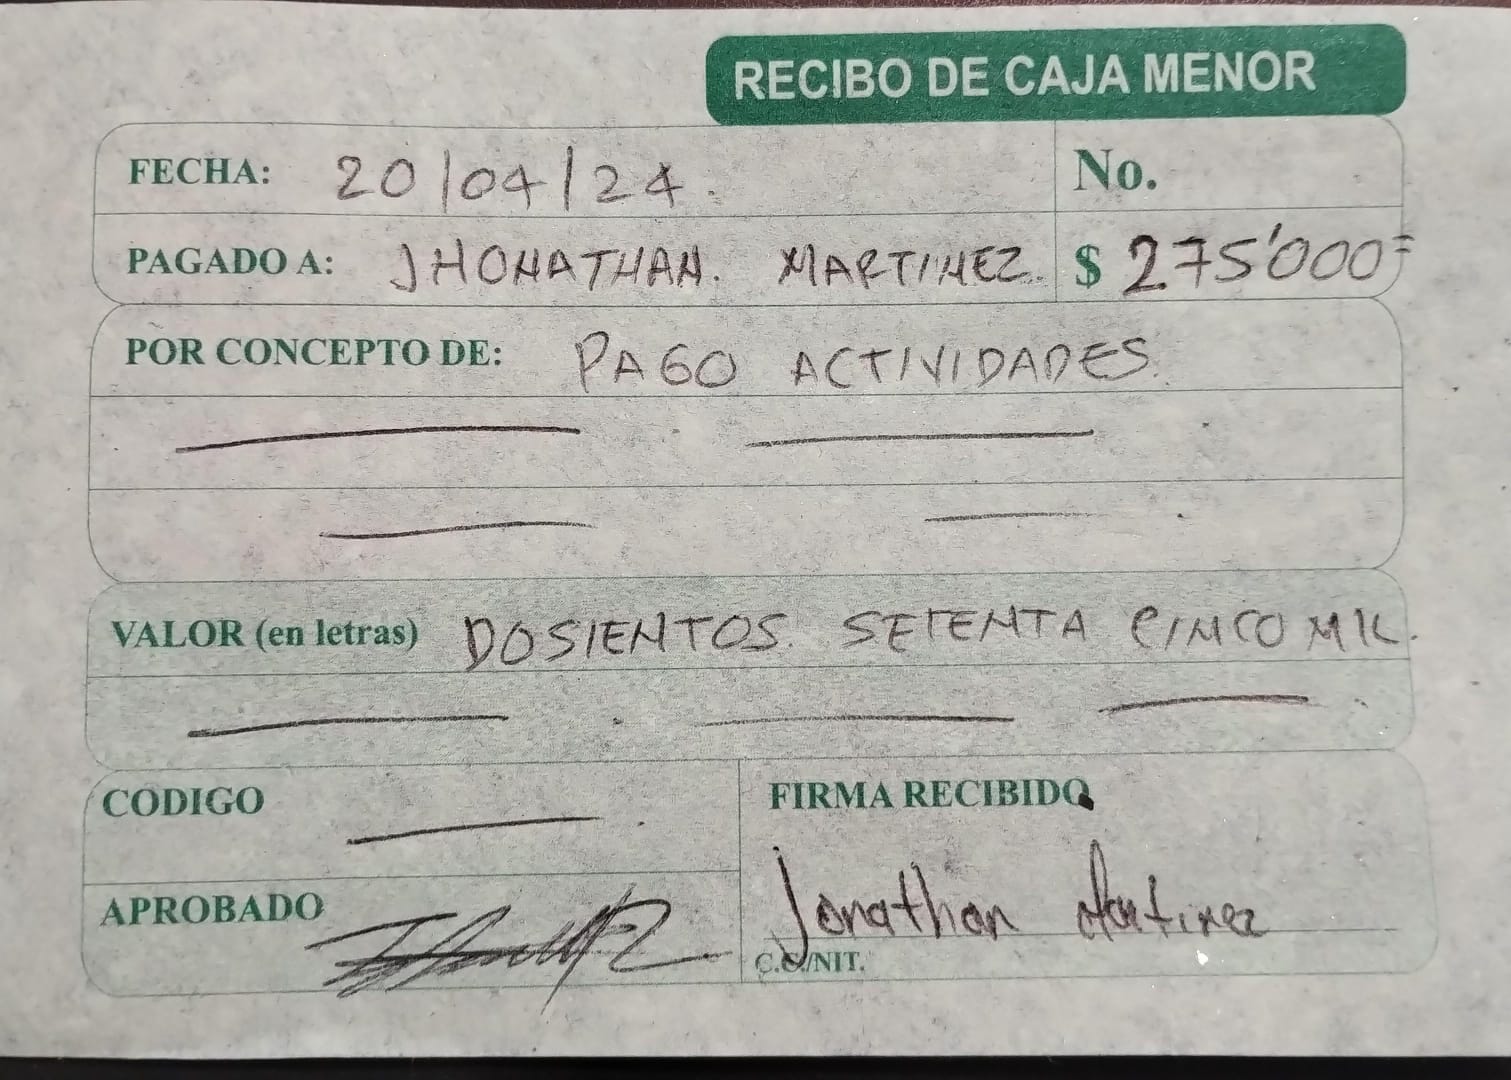 RECIBO DE CAJA MENOR
FECHA: 20/04/24. No.
PAGADO A: JHONATHAN. MARTINEZ. $ 275'000=
POR CONCEPTO DE: PAGO ACTIVIDADES.
VALOR (en letras) DOSIENTOS. SETENTA CINCO MIL.
CODIGO
FIRMA RECIBIDO
APROBADO
Jonathan Martinez
C.C./NIT.